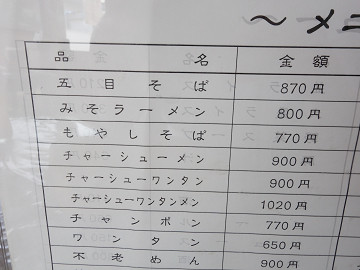 ～メニ
品名 金額
五目そば 870円
みそラーメン 800円
もやしそば 770円
チャーシューメン 900円
チャーシューワンタン 900円
チャーシューワンタンメン 1020円
チャンポン 770円
ワンタン 650円
不老めん 900円